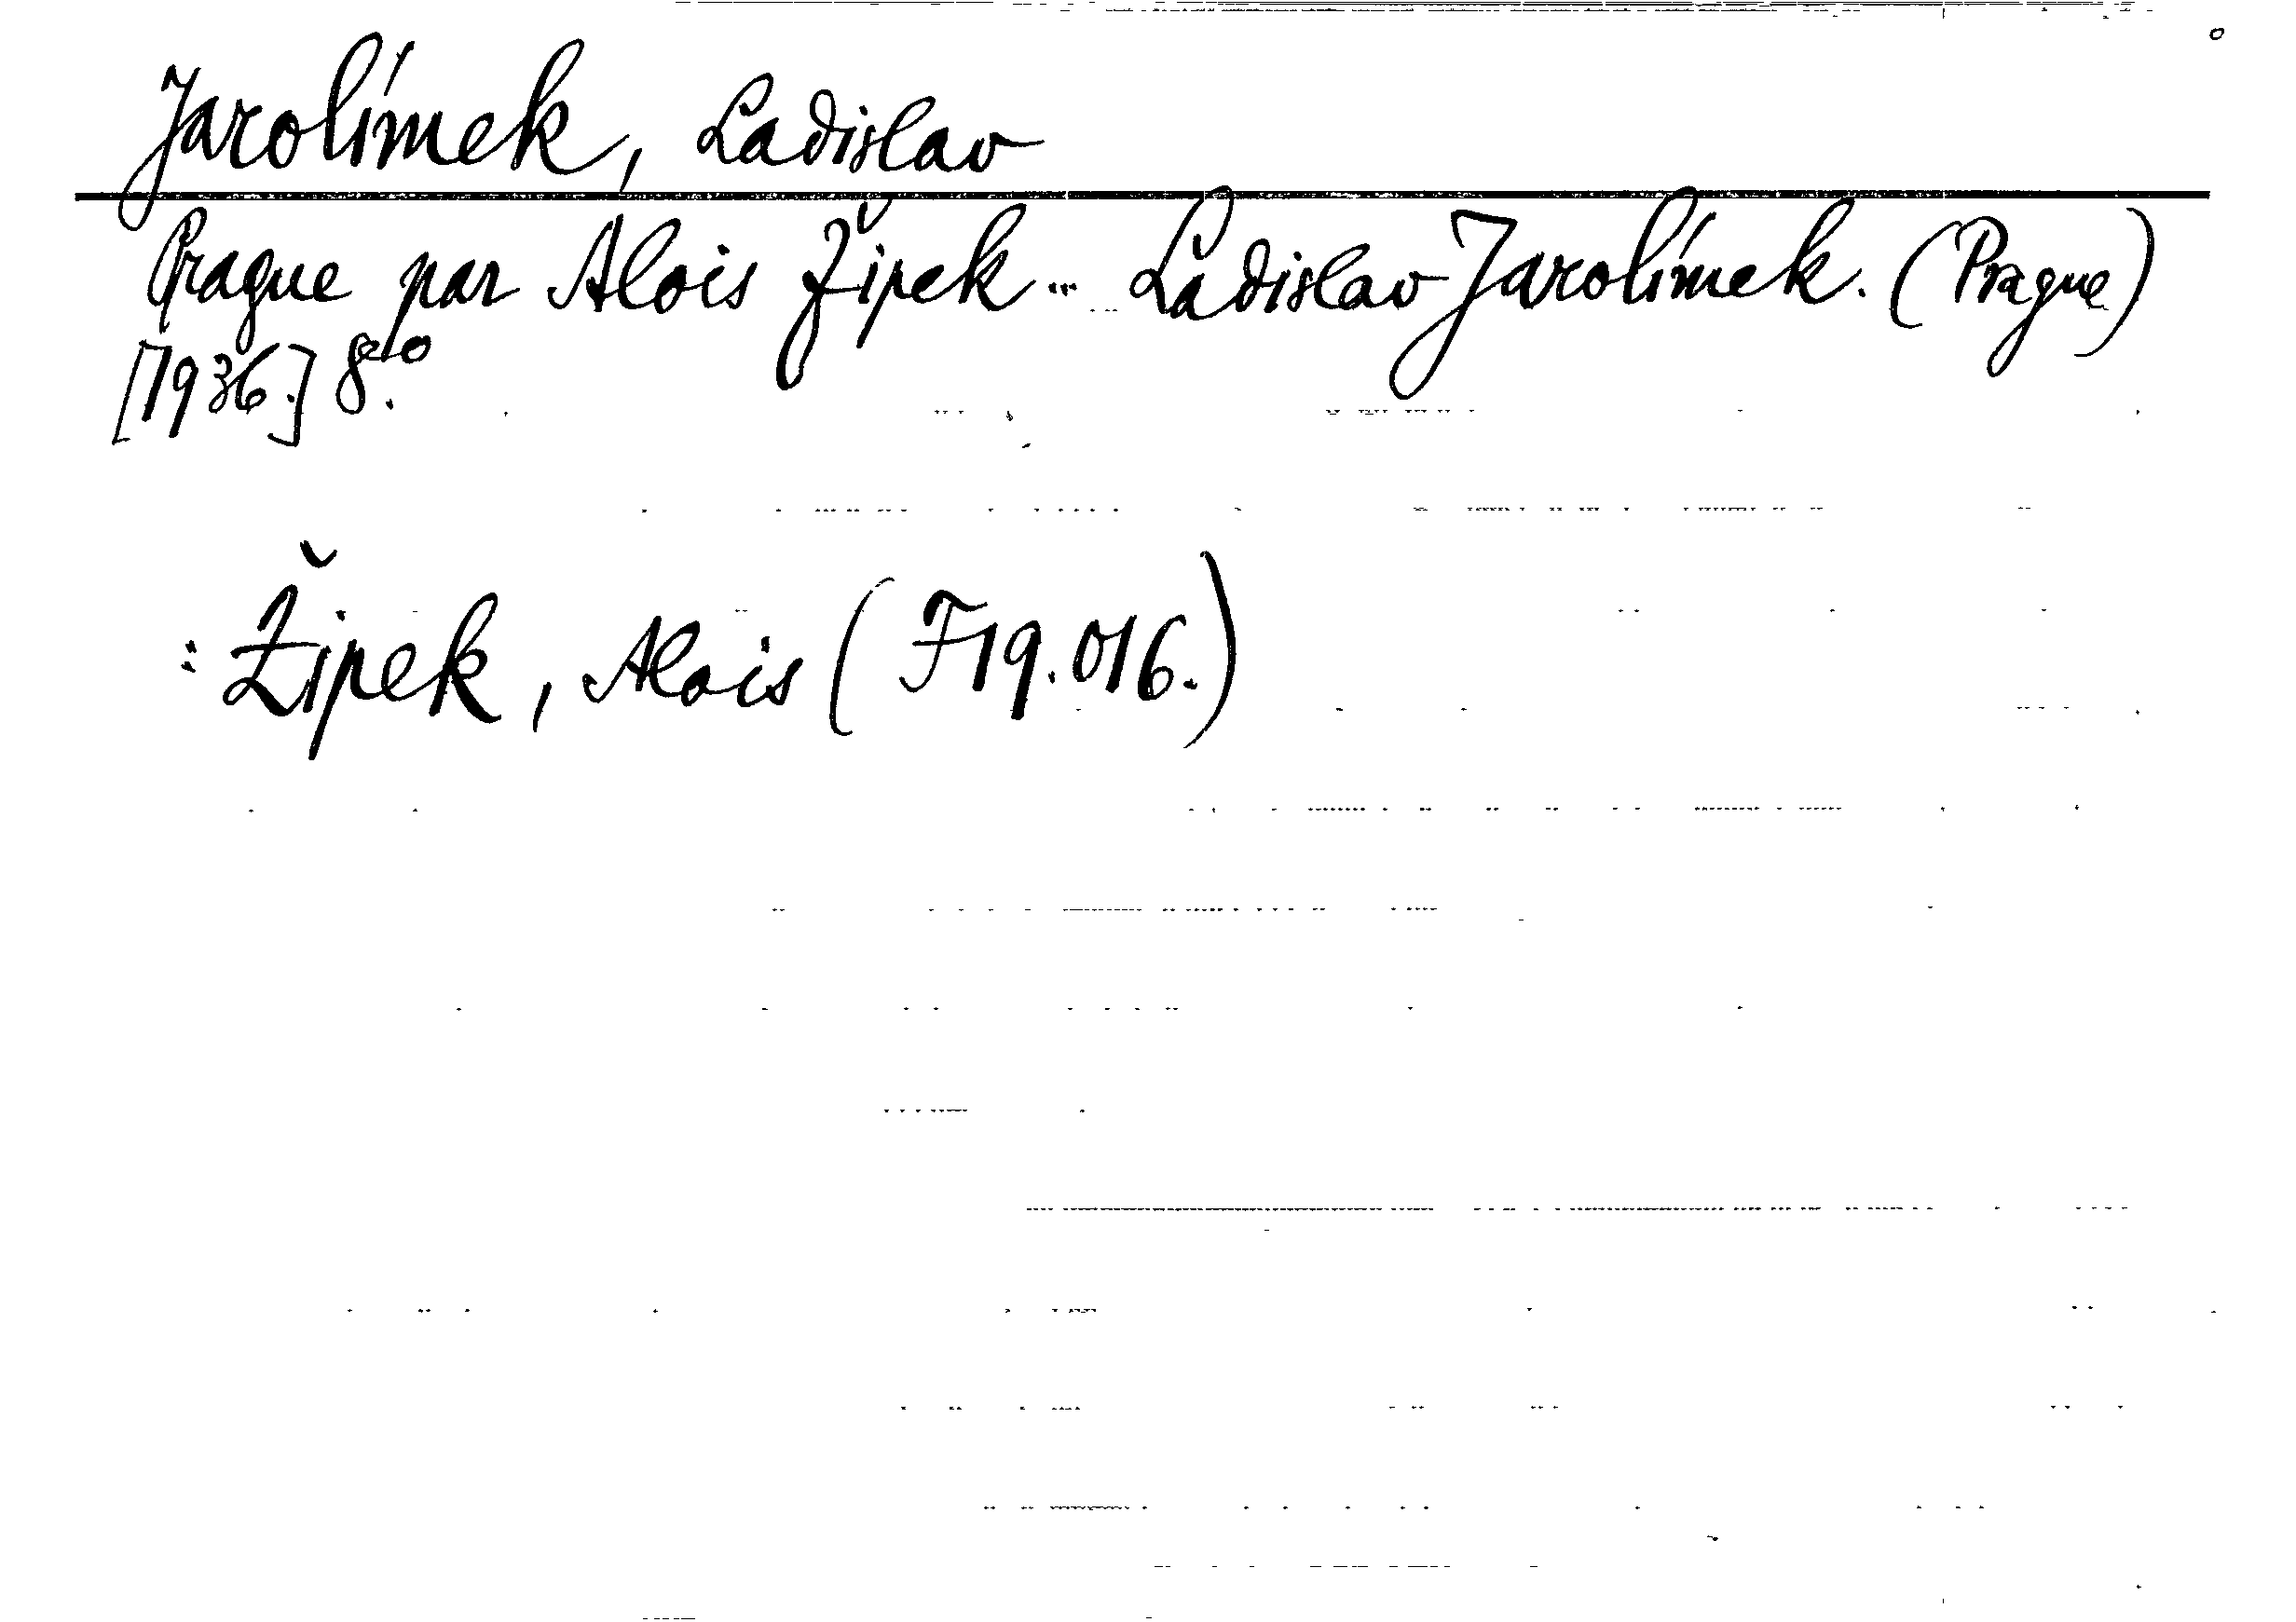 Jarolímek, Ladislav
Prague par Alois Žipek ... Ladislav Jarolímek. (Prague)
[1936.] 8.ro
: Žipek, Alois (F19.016.)